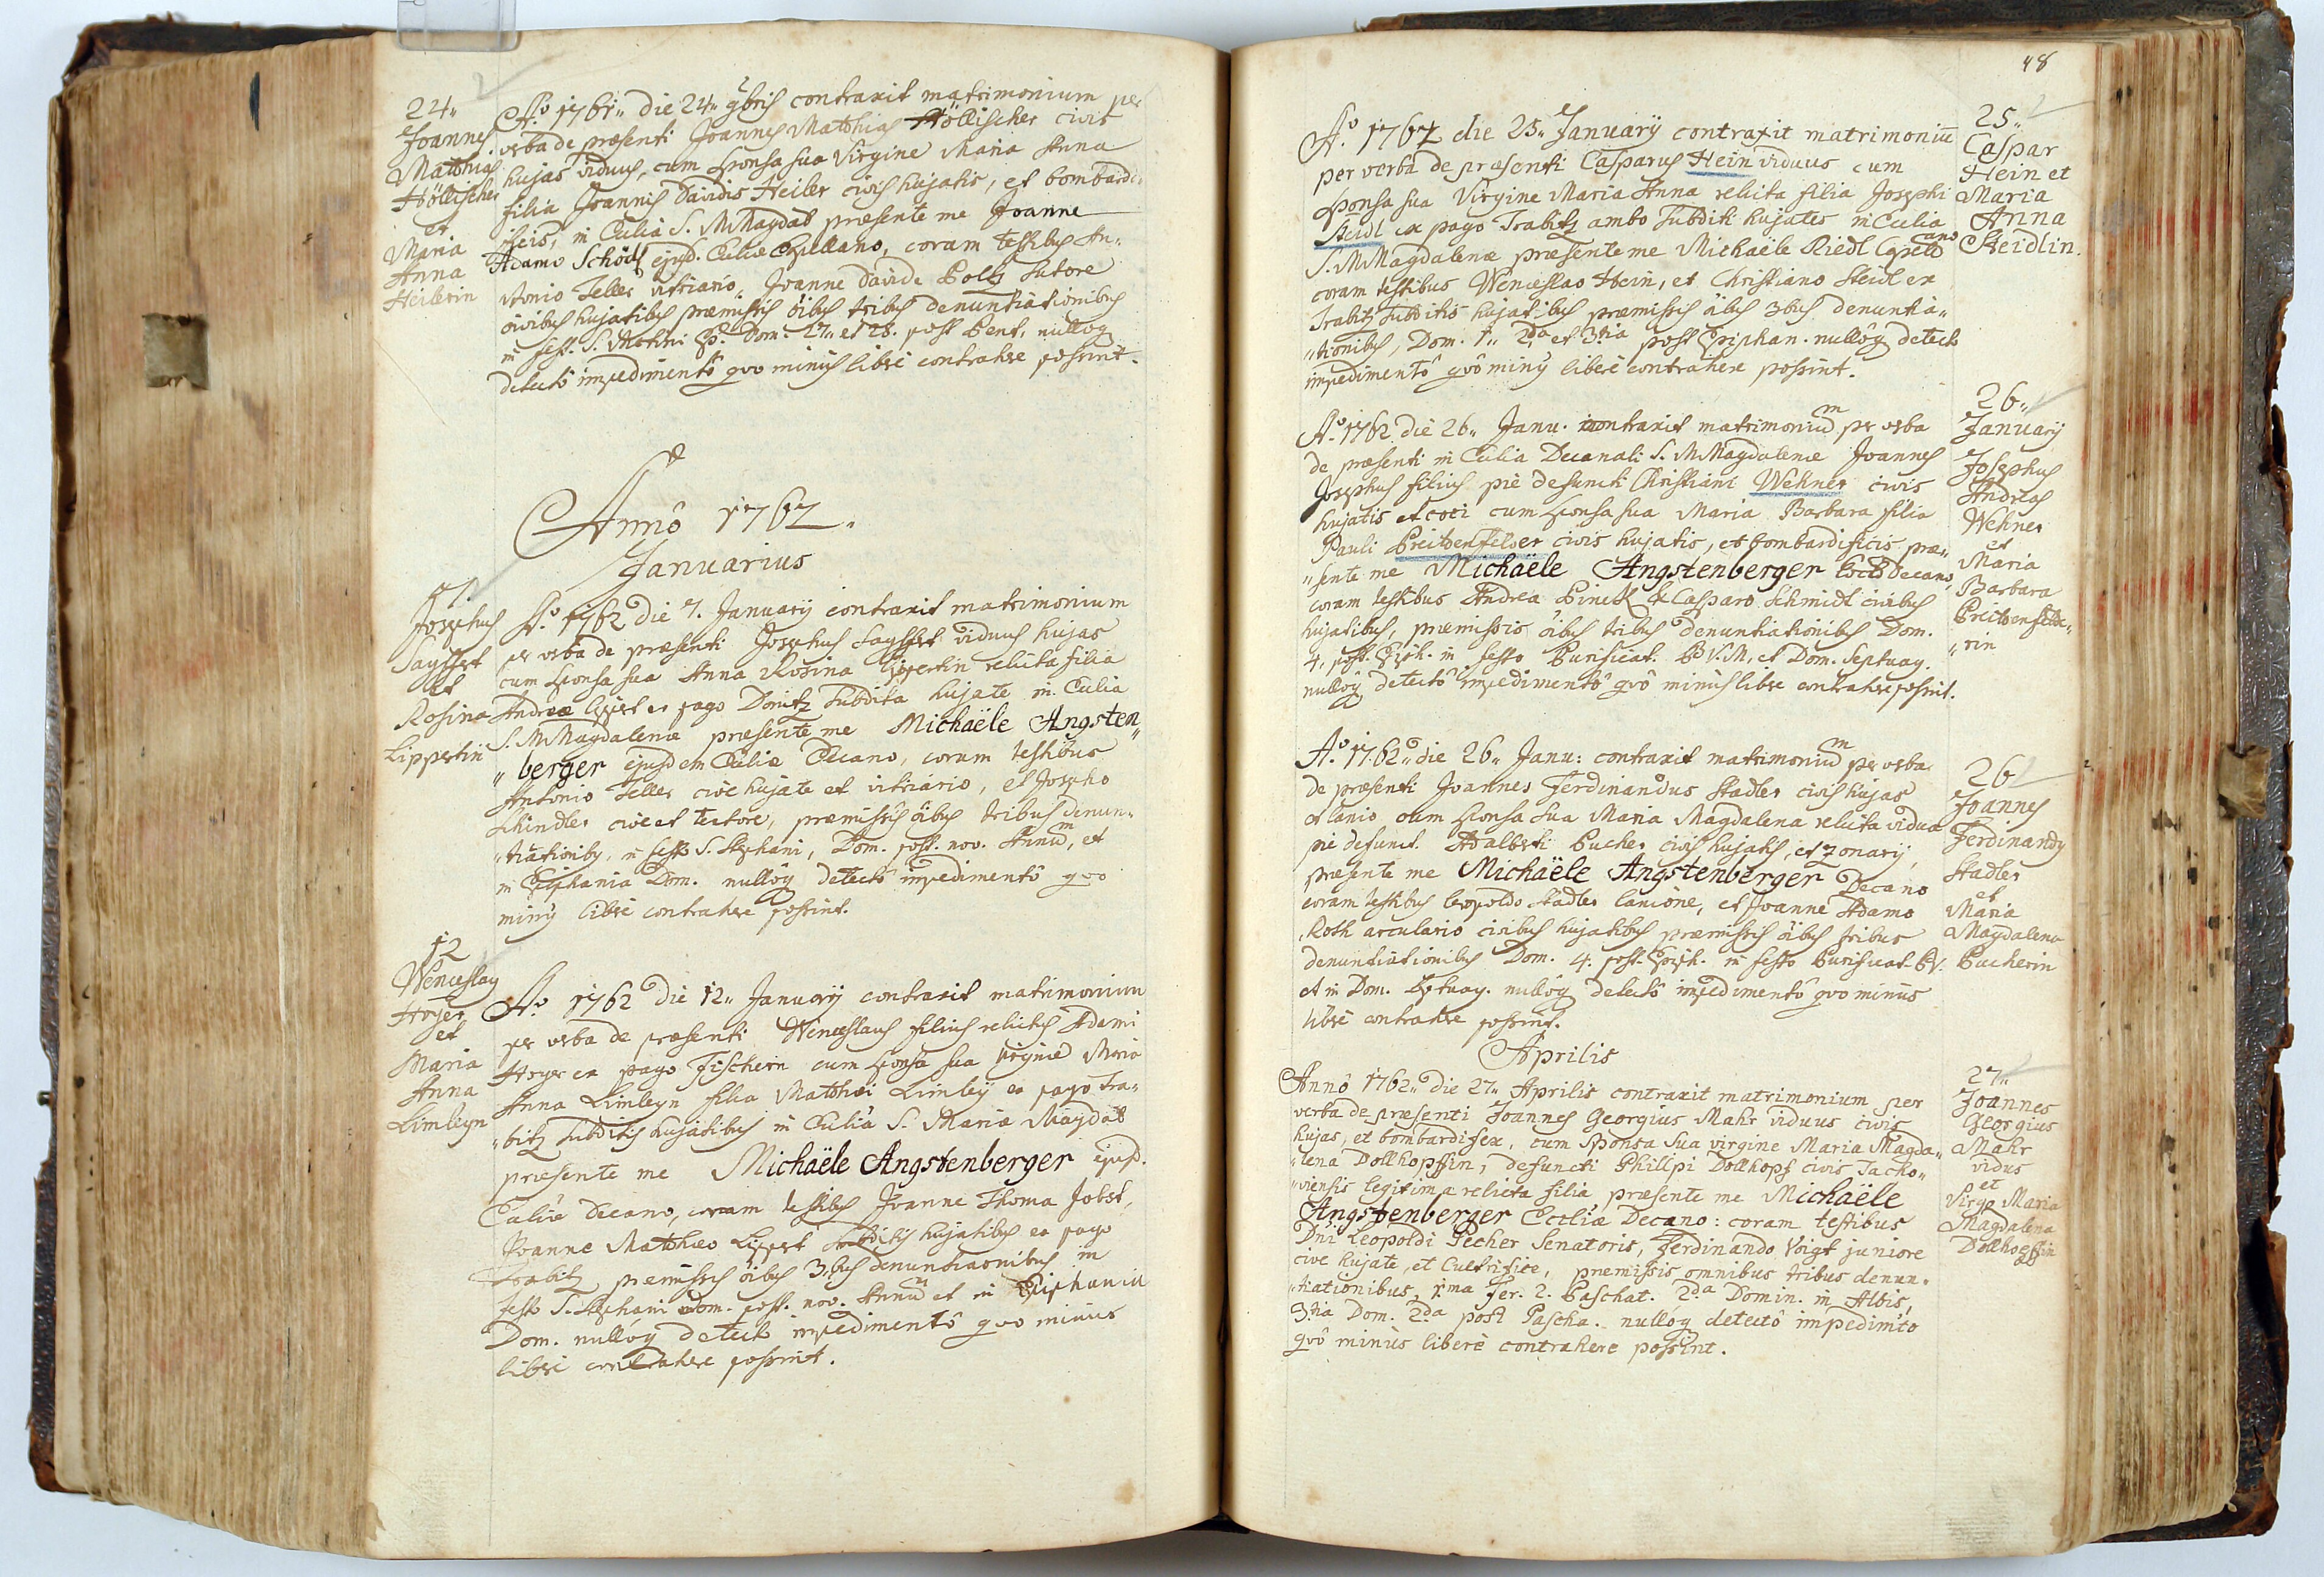 24„
Joannes
Matthias
Höllischer
et
Maria
Anna
Heilerin
Aõ 1761„ die 24„ 9bris contraxit matrimonium per
verba de præsenti Joannes Matthias Höllischer civis
hujas viduus, cum sponsa sua Virgine Maria Anna
filia Joannis Davidis Heiler civis hujatis, et bombardi„
ficis, in Eccliâ S. M Magdal præsente me Joanne
Adamo Schödl ejusd. Eccliæ Capellano, coram testibus An„
tonio Feller vitriario, Joanne Davide Poltz sutore
civibus hujatibus præmissis õibus tribus denuntiationibus
in fest. S. Martini Dom. 27„ et 28. post Pent. nullóq
detectô impedimentô quo minus liberè contrahere possint.
Annô 1762.
Januarius
7.
Josephus
et
Rosina
Lippertin
Aõ 1762 die 7. January contraxit matrimonium
per verba de præsenti Josephus viduus hujas
cum sponsa sua Anna Rosina Lippertin relicta filia
Andreæ Lippert ex pago Donitz subdita hujate in Ecclia
S. M Magdalenæ præsente me Michaële Angsten„
„berger ejusdem Eccliæ Decano, coram testibus
Antonio Feller cive hujate et vitriario, et Josepho
Schindler cive et textore, præmissis õibus tribus denun„
„tiationibq in festo S. Stephani, Dom. post. nov. Annum, et
in Epiphania Dom. nullóq detectô impedimentô quo
minq liberè contrahere possint.
12
Wenceslaq
Hoyer
et
Maria
Anna
Limleyn
Aõ 1762 die 12„ January contraxit matrimonium
per verba de præsenti Wenceslaus filius relictus Adami
Hoyer ex pago Fischern cum sponsa sua virgine Maria
Anna Limleyn filia Matthæi Limley ex pago Tra„
„bitz subditis hujatibus in Eccliâ S. Mariæ Magdal
præsente me Michaële Angstenberger ejusd.
Eccliæ Decano, coram testibus Joanne Thoma Jobst,
Joanne Matthæo Lippert subditis hujatibus ex pago
Trabitz præmissis õibus 3bus denuntiaonibus in
festo S. Stephani Dom. post. nov. Annum et in Epiphania
Dom. nullóq detecto impedimentô quo minus
liberè contrahere possint.
48
Aõ 1762 die 25„ January contraxit matrimoniũ
per verba de præsenti Casparus Hein viduus cum
sponsa sua Virgine Maria Anna relicta filia Josephi
Steidl ex pago Trabitz ambo subditi hujates in Ecclia
S. M Magdalenæ præsente me Michaële Riedl Capellano
coram testibus Wenceslao Hein, et Christiano Steidl ex
Trabitz subditis hujatibus præmissis õibus 3bus denuntia„
„tionibus, Dom. 1„ 2da et 3tia post Epiphan. nullôq detecto
impedimentô quô minq liberè contrahere possint.
25„
Caspar
Hein et
Maria
Anna
Steidlin.
Aõ 1762 die 26„ Janu. contraxit matrimonium per verba
de præsenti in Ecclia Decanali S. M Magdalenæ Joannes
Josephus filius piè defuncti Christiani Wehner civis
hujatis et coci cum sponsa sua Maria Barbara filia
Pauli Breitenfelder civis hujatis, et bombardificis præ„
„sente me Michaële Angstenberger Decano,
coram testibus Andrea Pinckl et Casparo Schmidt civibus
hujatibus, præmissis õibus tribus denuntiationibus Dom.
4. post. Epiph. in festo Purificat. B V. M, et Dom. Septuag.
nullóq detectô impedimentô quô minùs liberè contrahere possint.
26„
January
Josephus
Andreas
Wehner
et
Maria
Barbara
Breitenfelde„
„rin
Aõ 1762„ die 26„ Janu: contraxit matrimonium per verba
de præsenti Joannes Ferdinandus Stadler civis hujas
et lanio cum sponsa sua Maria Magdalena relicta vidua
piè defunct. Adalberti Pucher civis hujatis, et zonarij,
præsente me Michaële Angstenberger Decano
coram testibus Leopoldo Stadler lanione, et Joanne Adamo
Roth arculario civibus hujatibus præmissis õibus tribus
denuntiationibus Dom. 4. post. Epiph. in festo Purificat. BV.
et in Dom. Septuag. nullôq detectô impedimentô quo minùs
liberè contrahere possint.
26
Joannes
Ferdinandq
Stadler
et
Maria
Magdalena
Pucherin
Aprilis
Annô 1762„ die 27„ Aprilis contraxit matrimonium per
verba de præsenti Joannes Georgius Mahr viduus civis
hujas, et bombardifex, cum Sponsa sua virgine Maria Magda„
„lena Dollhopffin, defuncti Philipi Dollhopf civis Tacho„
„viensis legitima relicta filia præsente me Michaële
Angstenberger Eccliæ Decano: coram testibus
Dni Leopoldi Pecher Senatoris, Ferdinando Voigt juniore
cive hujate, et Cultrifice, premissis omnibus tribus denun„
„tiationibus, 1ma Fer. 2. Paschat. 2da Domin. in Albis,
3tia Dom. 2da post Pascha. nullóq detectô impedimto
quô minùs liberè contrahere possint.
27„
Joannes
Georgius
Mahr
vidus
et
Virgo Maria
Magdalena
Dollhopffin